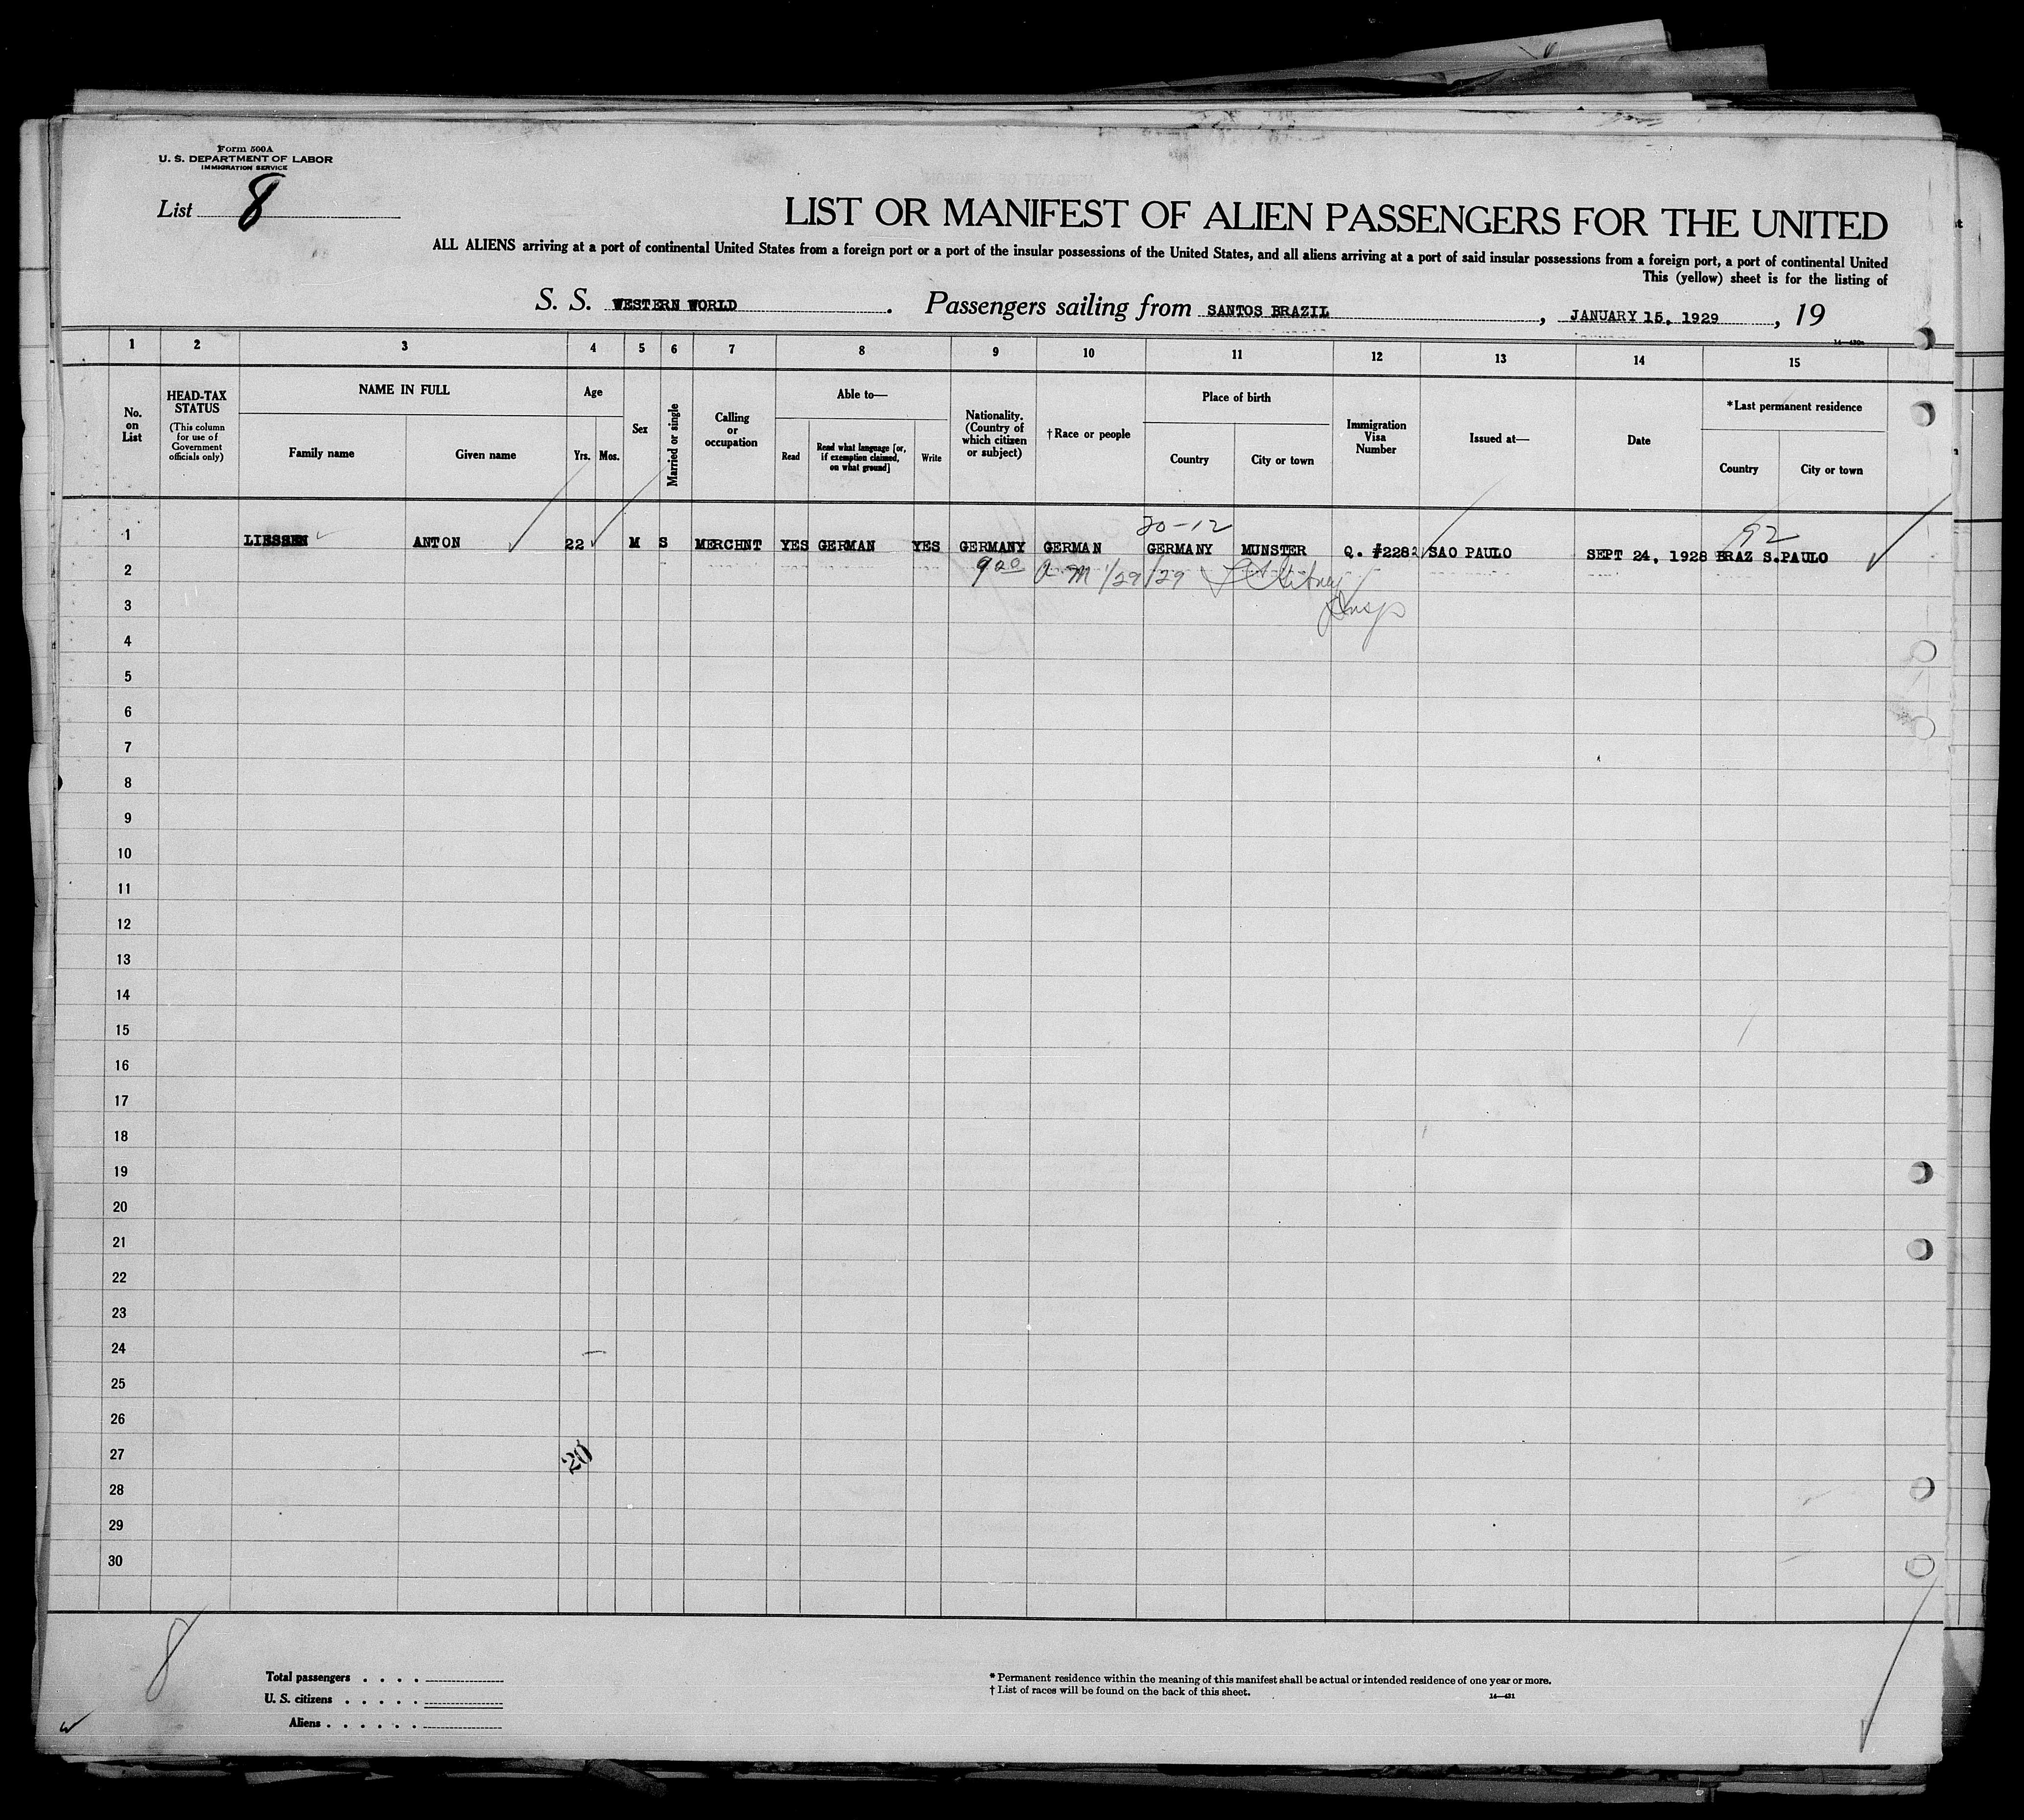 Form 500A
U. S. DEPARTMENT OF LABOR
IMMIGRATION SERVICE
List 8
LIST OR MANIFEST OF ALIEN PASSENGERS FOR THE UNITED
ALL ALIENS arriving at a port of continental United States from a foreign port or a port of the insular possessions of the United States, and all aliens arriving at a port of said insular possessions from a foreign port, a port of continental United
This (yellow) sheet is for the listing of
S. S. WESTERN WORLD. Passengers sailing from SANTOS BRAZIL, JANUARY 15, 1929, 19
14—430a
1 2 3 4 5 6 7 8 9 10 11 12 13 14 15
No. on List
HEAD-TAX STATUS
(This column for use of Government officials only)
NAME IN FULL
Family name
Given name
Age
Yrs.
Mos.
Sex
Married or single
Calling or occupation
Able to—
Read
Read what language [or, if exemption claimed, on what ground]
Write
Nationality. (Country of which citizen or subject)
†Race or people
Place of birth
Country
City or town
Immigration Visa Number
Issued at—
Date
*Last permanent residence
Country
City or town
20-12
92
1 LIESSEN ANTON 22 M S MERCHNT YES GERMAN YES GERMANY GERMAN GERMANY MUNSTER Q. #2282 SAO PAULO SEPT 24, 1928 BRAZ S.PAULO
2 9 20 a.m 1/29/29
3 Insp
4
5
6
7
8
9
10
11
12
13
14
15
16
17
18
19
20
21
22
23
24
25
26
27
20
28
29
30
8
Total passengers . . . .
U. S. citizens . . . . .
Aliens . . . . . .
* Permanent residence within the meaning of this manifest shall be actual or intended residence of one year or more.
† List of races will be found on the back of this sheet.
14—431